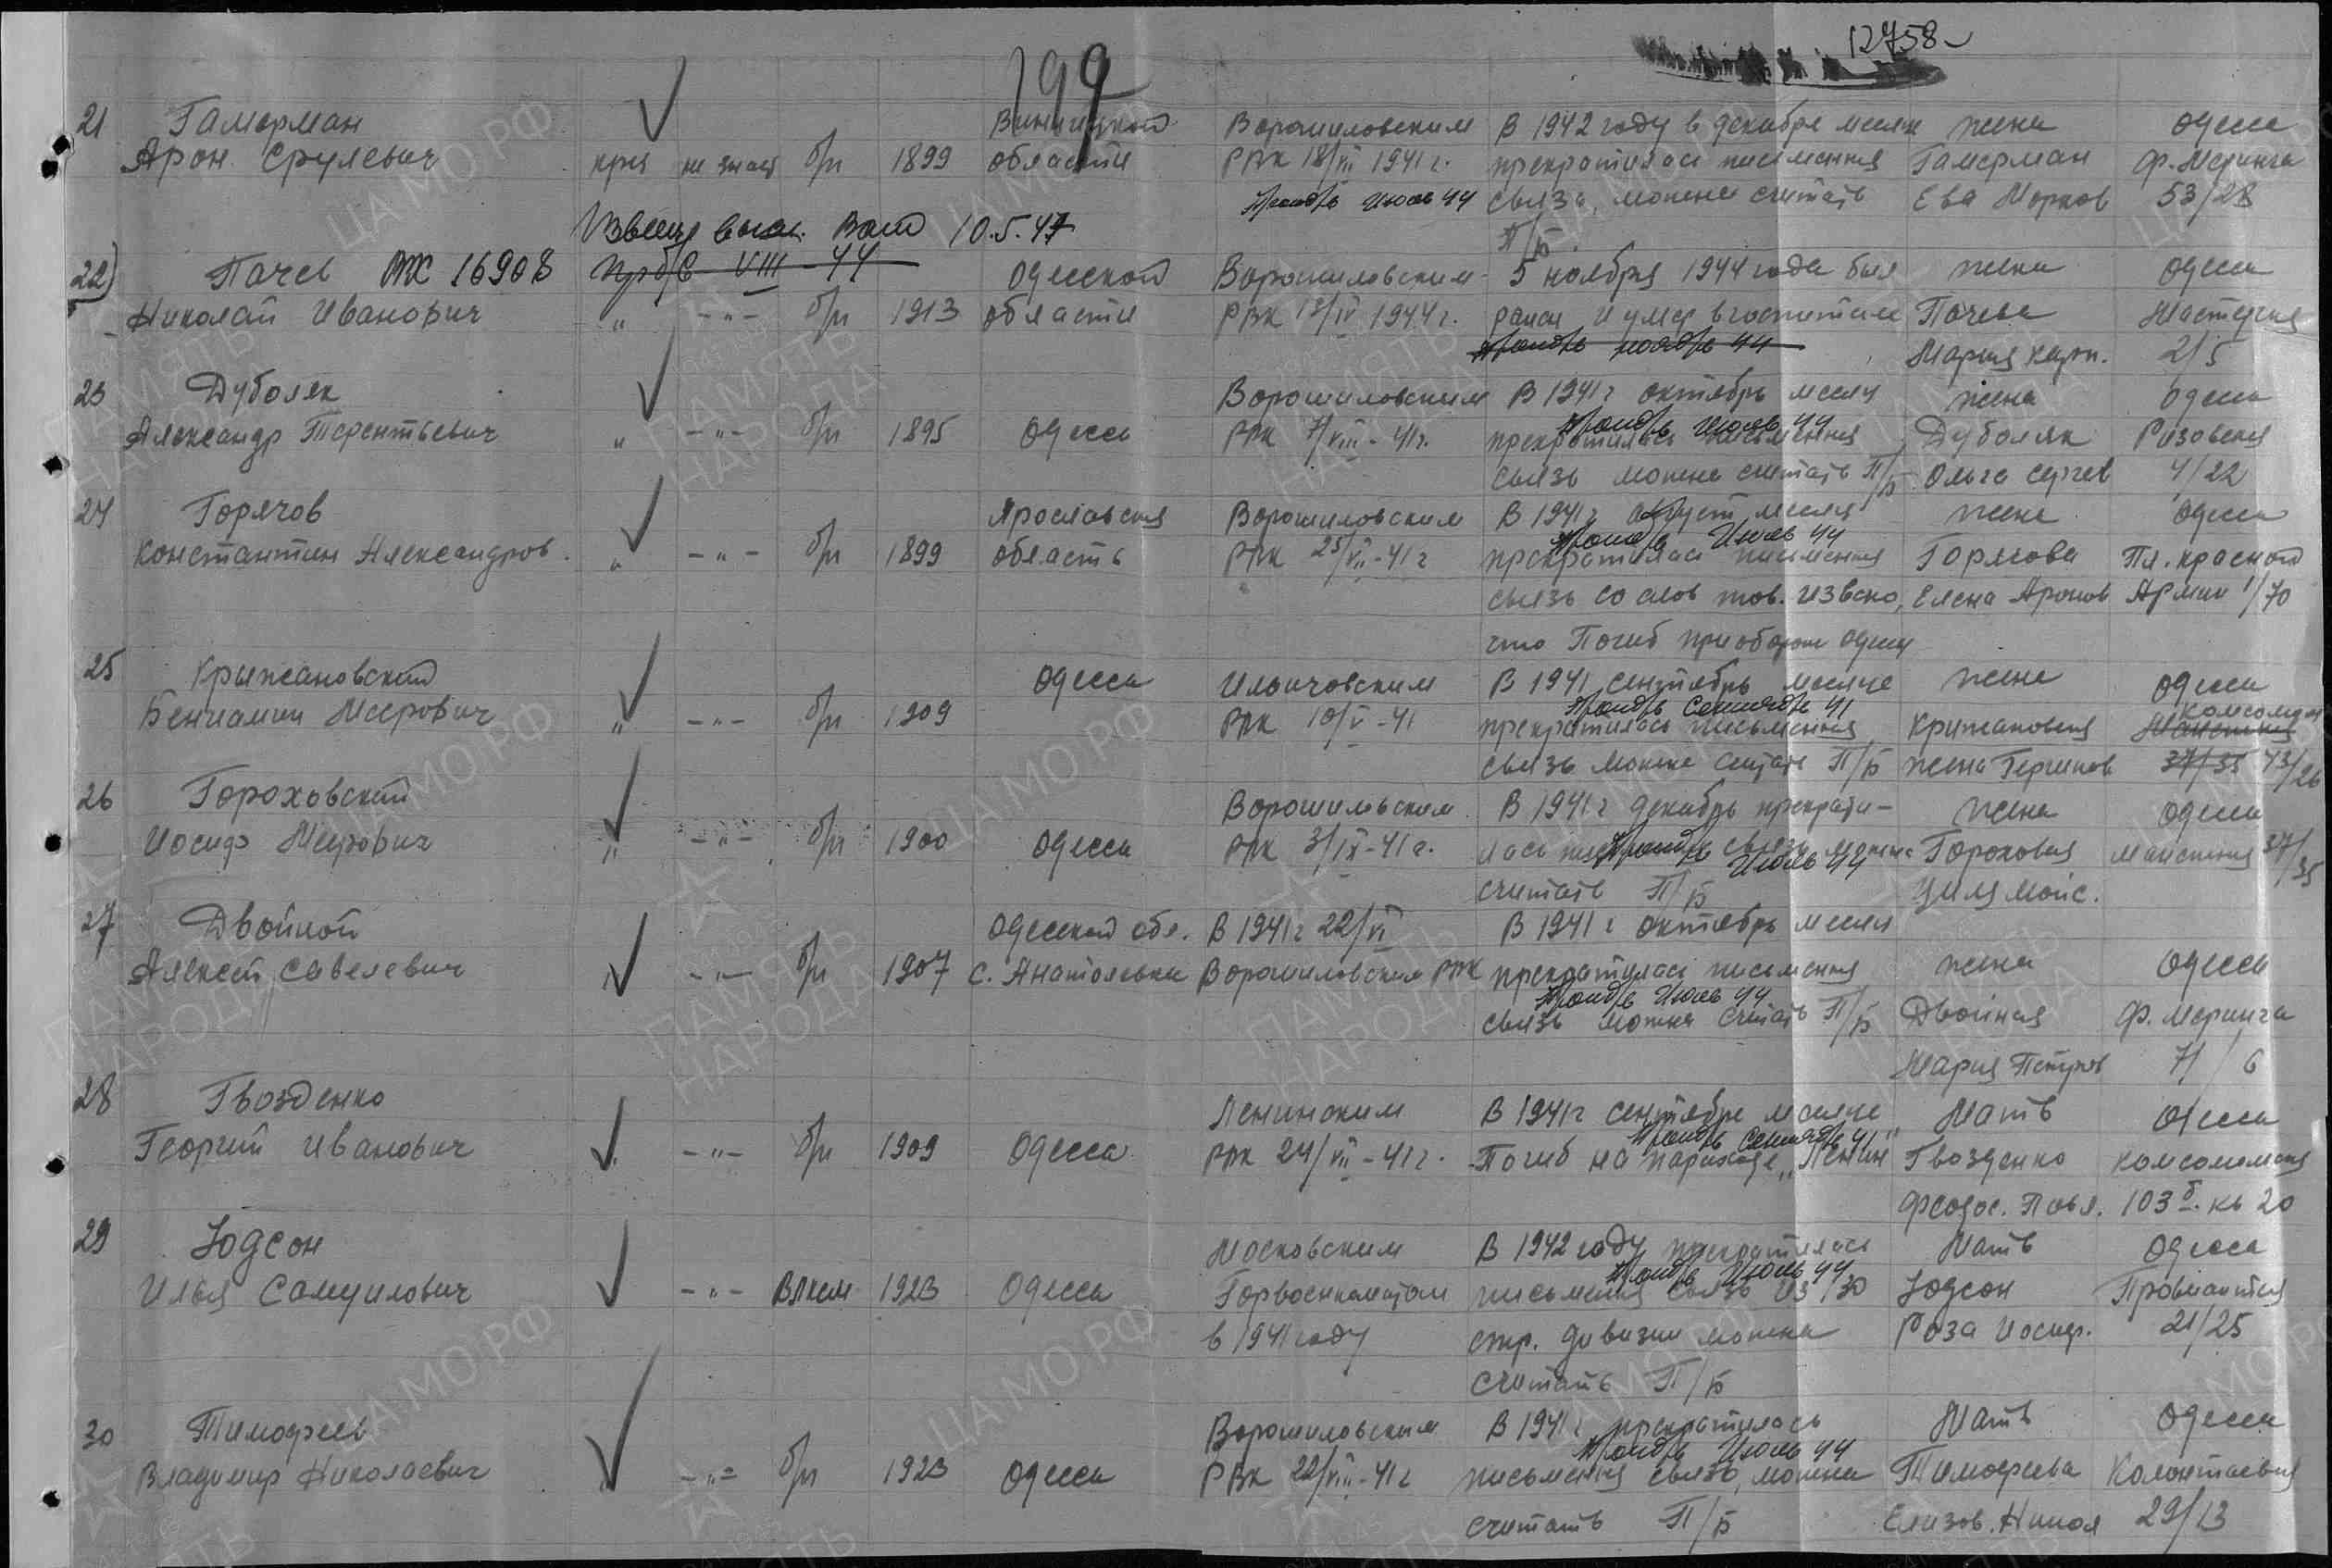 199
12758
21 Гамерман Винницкой Ворошиловским В 1942 году в декабре месяце жена Одесса
Арон Срулевич кр-ц не знает б/п 1899 области РВК 18/VII 1941 г. прекратилась письменная Гамерман Ф. Меринга
Июль 44 связь, можно считать Ева Марков 53/28
П/Б.
10.5.47
22) Пачев 16908 VIII-44 Одесской Ворошиловским 5 ноября 1944 года был жена Одесса
Николай Иванович " -"- б/п 1913 области РВК 13/IV 1944 г. ранен и умер в госпитале Пачева
ноябрь 44 Мария 2/5
23 Дуболяк Ворошиловским В 1941 г октябрь месяц жена Одесса
Александр Терентьевич " -"- б/п 1895 Одесса РВК 7/VIII-41г. прекратилась письменная Дуболяк Ризовская
Июль 44
связь можно считать П/Б Ольга Сергеев 4/22
24 Горячов Ярославская Ворошиловским В 1941 г август месяц жена Одесса
Июль 44
Константин Александров. " -"- б/п 1899 область РВК 25/VII-41 г прекратилась письменная Горячова Пл. Красной
связь со слов тов. Елена Аронов Армии 1/70
что Погиб при обороне Одессы
25 Крыжановский Одесса Ильичовским В 1941 сентябрь месяце жена Одесса
Сентябрь 41
Бениамин Меерович " -"- б/п 1909 РВК 10/V-41 прекратилась письменная Крижановская Комсомол
связь можно считать П/Б жена 37/35 43/26
26 Гороховский Ворошиловским В 1941 г декабрь прекрати-
жена Одесса
Иосиф Меерович " -"- б/п 1900 Одесса РВК 3/IX-41 г. лась связь можно Гороховская 37/35
Июль 44
считать П/Б Циля Мойс.
27 Двойной Одесской обл. В 1941 г 22/VI В 1941 г октябрь месяц
Алексей Савелевич -"- б/п 1907 с. Анатольевка Ворошиловским РВК прекратилась письменная жена Одесса
Июль 44
связь можно считать П/Б Двойная Ф. Меринга
Мария Петров 71/6
28 Гвозденко Ленинским В 1941 г сентябре месяце Мать Одесса
Сентябрь 41
Георгий Иванович " -"- б/п 1909 Одесса РВК 24/VII-41 г. Погиб на пароходе „Ленин" Гвозденко Комсомольская
Феодос. Павл. 103 б. кв 20
29 Юдсон Московским В 1942 году прекратилась Мать Одесса
Июль 44
Илья Самуилович -"- ВЛКСМ 1923 Одесса Горвоенкоматом письменная связь из 30 Юдсон Провиантская
в 1941 году стр. дивизии можно Роза Иосиф. 21/25
считать П/Б
30 Тимофеев Ворошиловским В 1941 г прекратилась Мать Одесса
Июль 44
Владимир Николаевич " -"- б/п 1923 Одесса РВК 22/VIII-41 г письменная связь, можно Тимофеева Колонтаевская
считать П/Б Елизов. Никол 29/13
ЦА МО РФ
ПАМЯТЬ НАРОДА